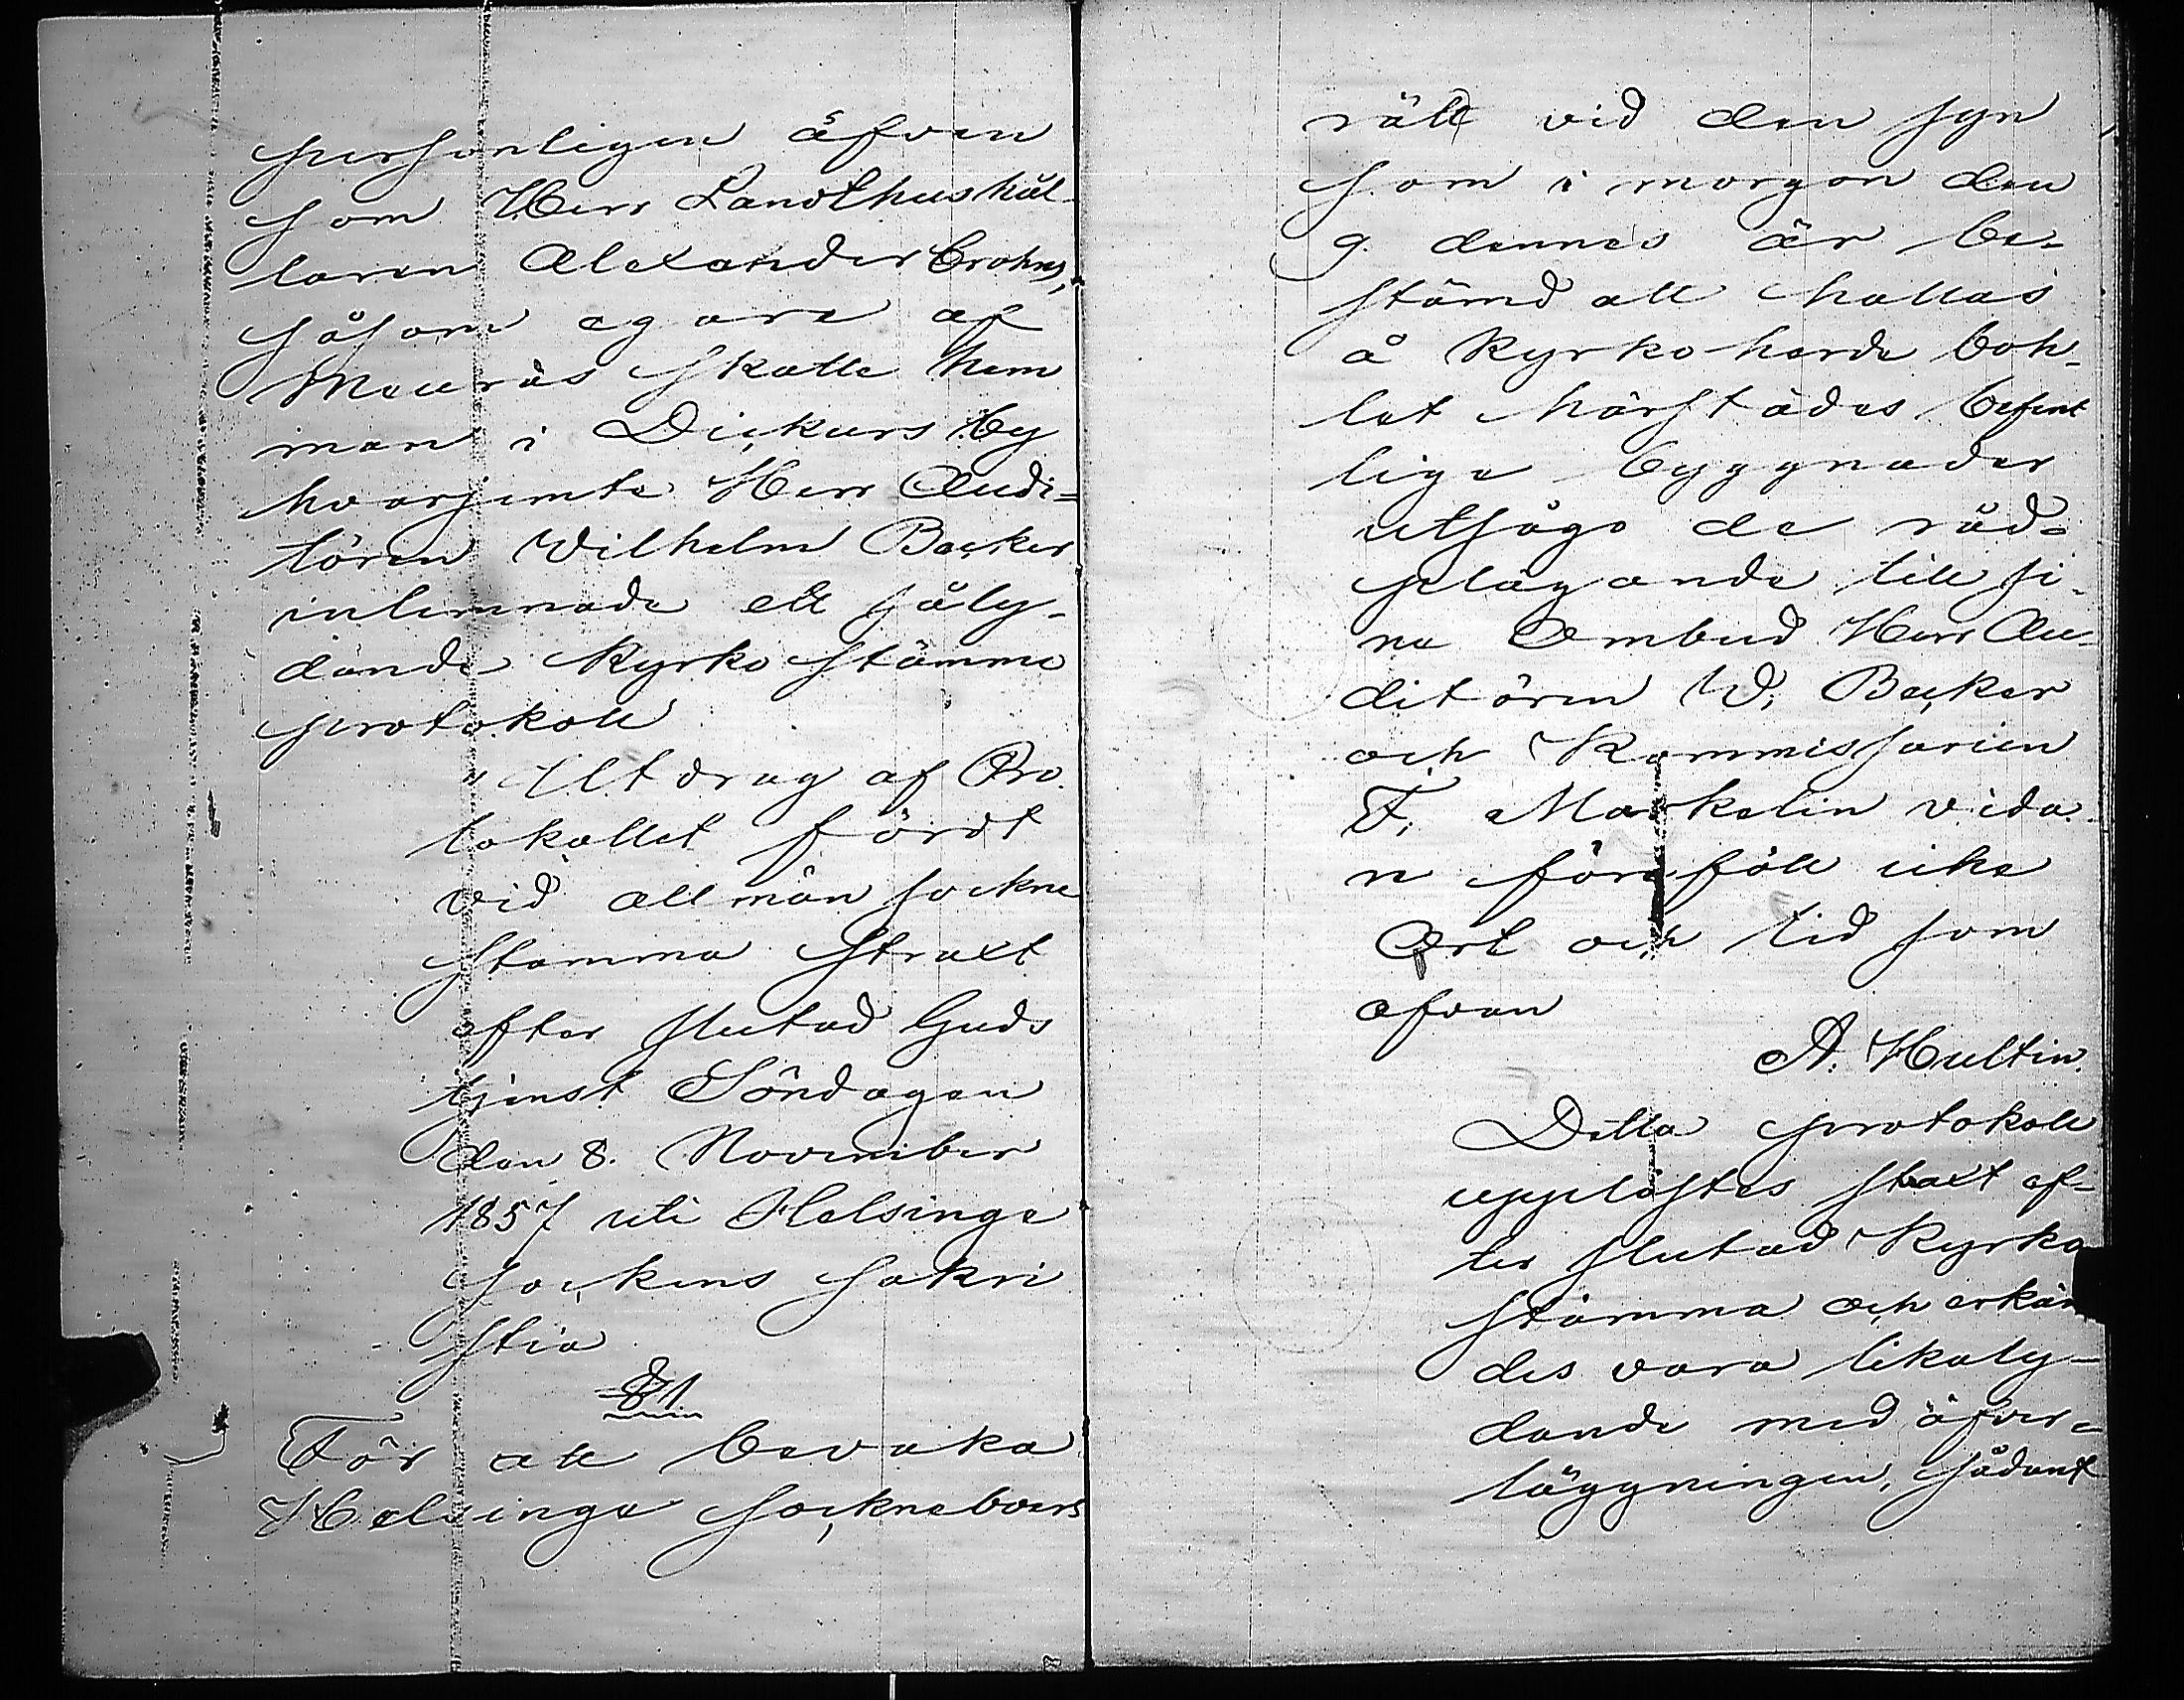 personligen äfven
som Herr Landthushål-
laren Alexander Crohns,
såsom egare af
Meurås Skatte hem
man i Dickurs by
hvarjemte Herr Audi=
tören Wilhelm Backer
inlemnade ett såly-
dande Kyrko stämmo
protokoll
"Utdrag af Pro
tokollet fördt
vid allmän sockne
stamma straxt
efter slutad Guds
tjenst Söndagen
den 8. November
1857 uti Helsinge
sockens sakri
stia
§1
För att bevaka
Helsinge socknebors
rätt vid den syn
som i morgon den
9. dennes är be-
stämd att hållas
å Kyrkoherde boh-
let härstädes befint
liga byggnader
utsågo de råd-
plägande till si-
na Ombud Herr Au-
ditören W. Backer
och Kommissarien
F. Markelin vida
re föreföll icke
Ort och tid som
ofvan
A. Hultin.
Detta protokoll
upplästes straxt ef-
ter slutad Kyrko
stämma och erkän
des vara likaly-
dande med öfver-
läggningen, sådant